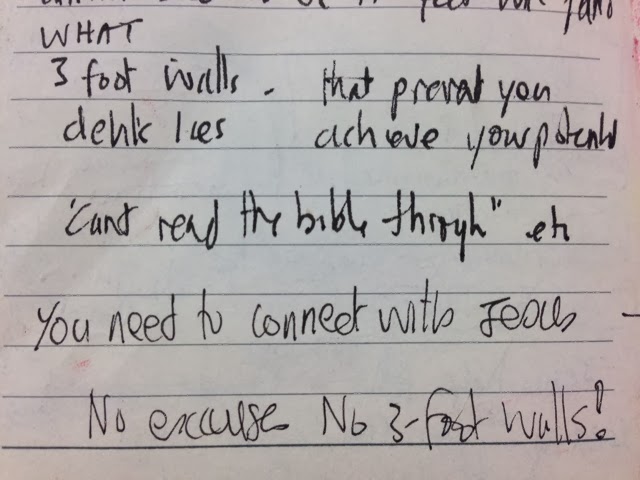 WHAT
3 foot walls - that prevent you
achieve your potential
"Cant read the bible through" etc
You need to connect with Jesus -
No excuse No 3-foot walls!